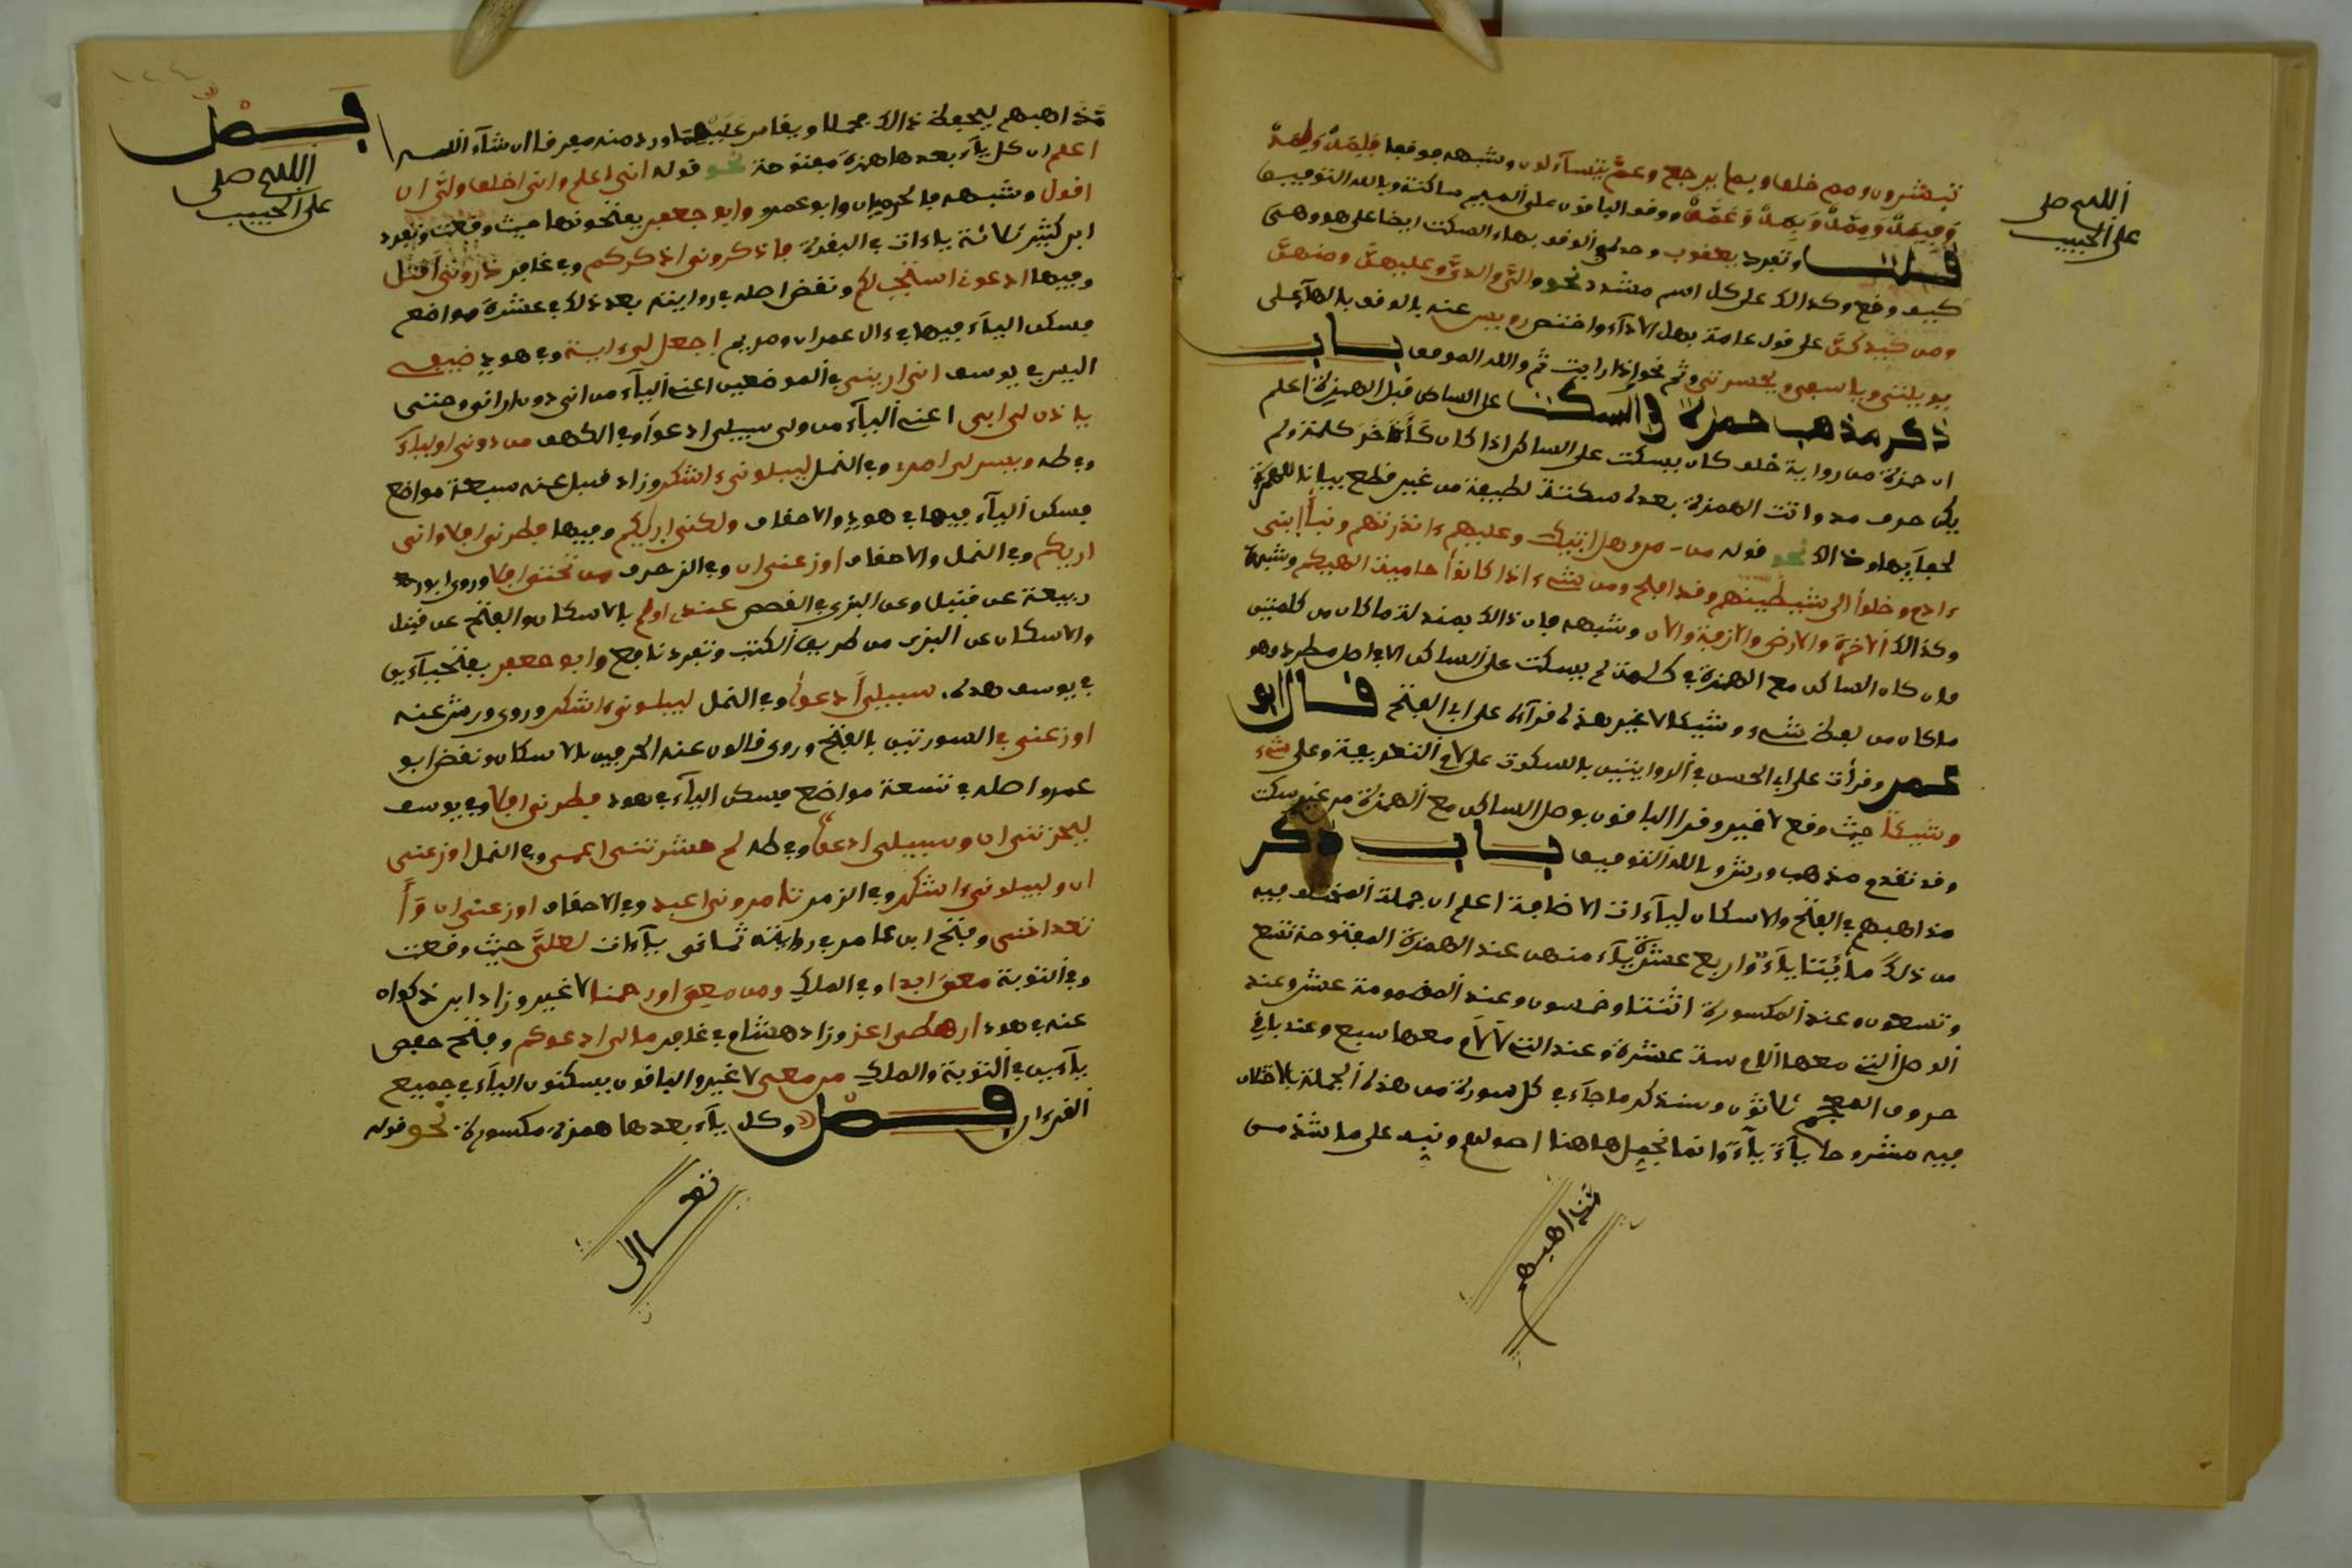 اللهم صل
على الحبيب
تبشرون ومم خلق وبما يرجع وعم يتساءلون وشبهه موقعا فلمه ولمه
وفيمه وممه وبمه وعمه ووقف الباقون على الميم ساكنة وبالله التوفيق
قلت وتفرد يعقوب وحده في الوقف بهاء السكت ايضا على هو وهي
كيف وقع وكذالك على كل اسم مشدد نحو والي ولدي وعليهن ومنهن
ومن كيدكن على قول عامة بعل الاداء واختص رويس عنه بالوقف بالهاء على
يويلتى وياسفى ويحسرتى وثم نحو اذا رايت ثم والله الموفق باب
ذكر مذهب حمزة في السكت على الساكن قبل الهمزة اعلم
ان حمزة من رواية خلف كان يسكت على الساكن اذا كان ءاخر كلمة ولم
يكن حرف مد واتت الهمزة بعده سكتة لطيفة من غير قطع بيانا للهمزة
لخفآيها وذالك نحو قوله من ـ من وهل اتيك وعليهم ءانذرتهم ونبا ابنى
ءادم وخلوا الى شيطينهم وقد افلح ومن شىء اذا كانوا حامية الهيكم وشبهه
وكذالك الاخرة والارض والازفة والان وشبهه فان ذالك بمنزلة ما كان من كلمتين
فان كان الساكن مع الهمزة في كلمة لم يسكت على الساكن الا في اصل مطرد وهو
ما كان من لفظ شىء وشيئا لا غير بهذه قرآءتى على ابي الفتح قال ابو
عمرو وقرات على ابي الحسن في الروايتين بالسكوت على لام التعريف وعلى شىء
وشيئا حيث وقع لا غير وقرا الباقون بوصل الساكن مع الهمزة من غير سكت
وقد تقدم مذهب ورش وبالله التوفيق باب ذكر
مذاهبهم في الفتح والاسكان ليآءات الاضافة اعلم ان جملة المختلف فيه
من ذلك مائتا يآء واربع عشرة يآء منهن عند الهمزة المفتوحة تسع
وتسعون وعند المكسورة اثنتا وخمسون وعند المضمومة عشر وعند
الوصل التى معها اللام ستة عشرة وعند التى لا لام معها سبع وعند باقى
حروف المعجم ثلاثون وسنذكر ما جآء في كل سورة من هذه الجملة بالاختلاف
فيه مشروحا يآء يآء وانما نجمل هاهنا اصولهم وننبه على ما شذ من
مذاهبهم
فصل
اللهم صلى
على الحبيب
مذاهبهم ليحفظ ذالك مجملا ويقاس عليهما ورد منه مفرقا ان شآء الله
اعلم ان كل يآء بعدها همزة مفتوحة نحو قوله انى اعلم وانى اخلق ولى ان
اقول وشبهه فالحرميان وابو عمرو وابو جعفر يفتحونها حيث وقعت وتفرد
ابن كثير ثلاثة ياءات في البقرة فاذكرونى اذكركم وفى غافر ذرونى اقتل
وفيها ادعونى استجب لكم ونقض اصله في روايته بعد ذلك في عشرة مواضع
فسكن اليآء فيها في ءال عمران ومريم اجعل لى ءاية وفي هود ضيفى
اليس في يوسف انى ارينى في الموضعين اعنى اليآء من انى دون ارانى وحتى
ياذن لى ابى اعنى اليآء من ولى سبيلى ادعوا وفي الكهف من دونى اوليآء
وفي طه ويسر لى امرى وفي النمل ليبلونى ءاشكر وزاد قنبل عنه سبعة مواضع
فسكن اليآء فيها في هود والاحقاف ولكنى اريكم وفيها فطرنى افلا وانى
اريكم وفي النمل والاحقاف اوزعنى ان وفي الزخرف من تحتى افلا وروى ابو
ربيعة عن قنبل وعن البزي في القصص عندى اولم بالاسكان والفتح عن قنبل
والاسكان عن البزى من طريق الكتب وتفرد نافع وابو جعفر بفتح يآءين
في يوسف هذه سبيلى ادعوا وفي النمل ليبلونى ءاشكر وروى ورش عنه
اوزعنى في السورتين بالفتح وروى قالون عنه الحرفين بالاسكان ونقض ابو
عمرو اصله في تسعة مواضع فسكن اليآء في هود فطرنى افلا وفي يوسف
ليحزننى ان وسبيلى ادعوا وفي طه لم حشرتنى اعمى وفي النمل اوزعنى
ان وليبلونى ءاشكر وفي الزمر تامرونى اعبد وفي الاحقاف اوزعنى ان وأ
تعداننى وفتح ابن عامر في روايته ثمانى يآءات لعلى حيث وقعت
وفي التوبة معى ابدا وفي الملك ومن معى اور حمنا لا غير وزاد ابن ذكوان
عنه في هود ارهطى اعز وزاد هشام في غافر مالى ادعوكم وفتح حفص
يآءين في التوبة والملك من معى لا غير والباقون يسكنون اليآء في جميع
القرءان فصل وكل يآء بعدها همزة مكسورة نحو قوله
تعالى